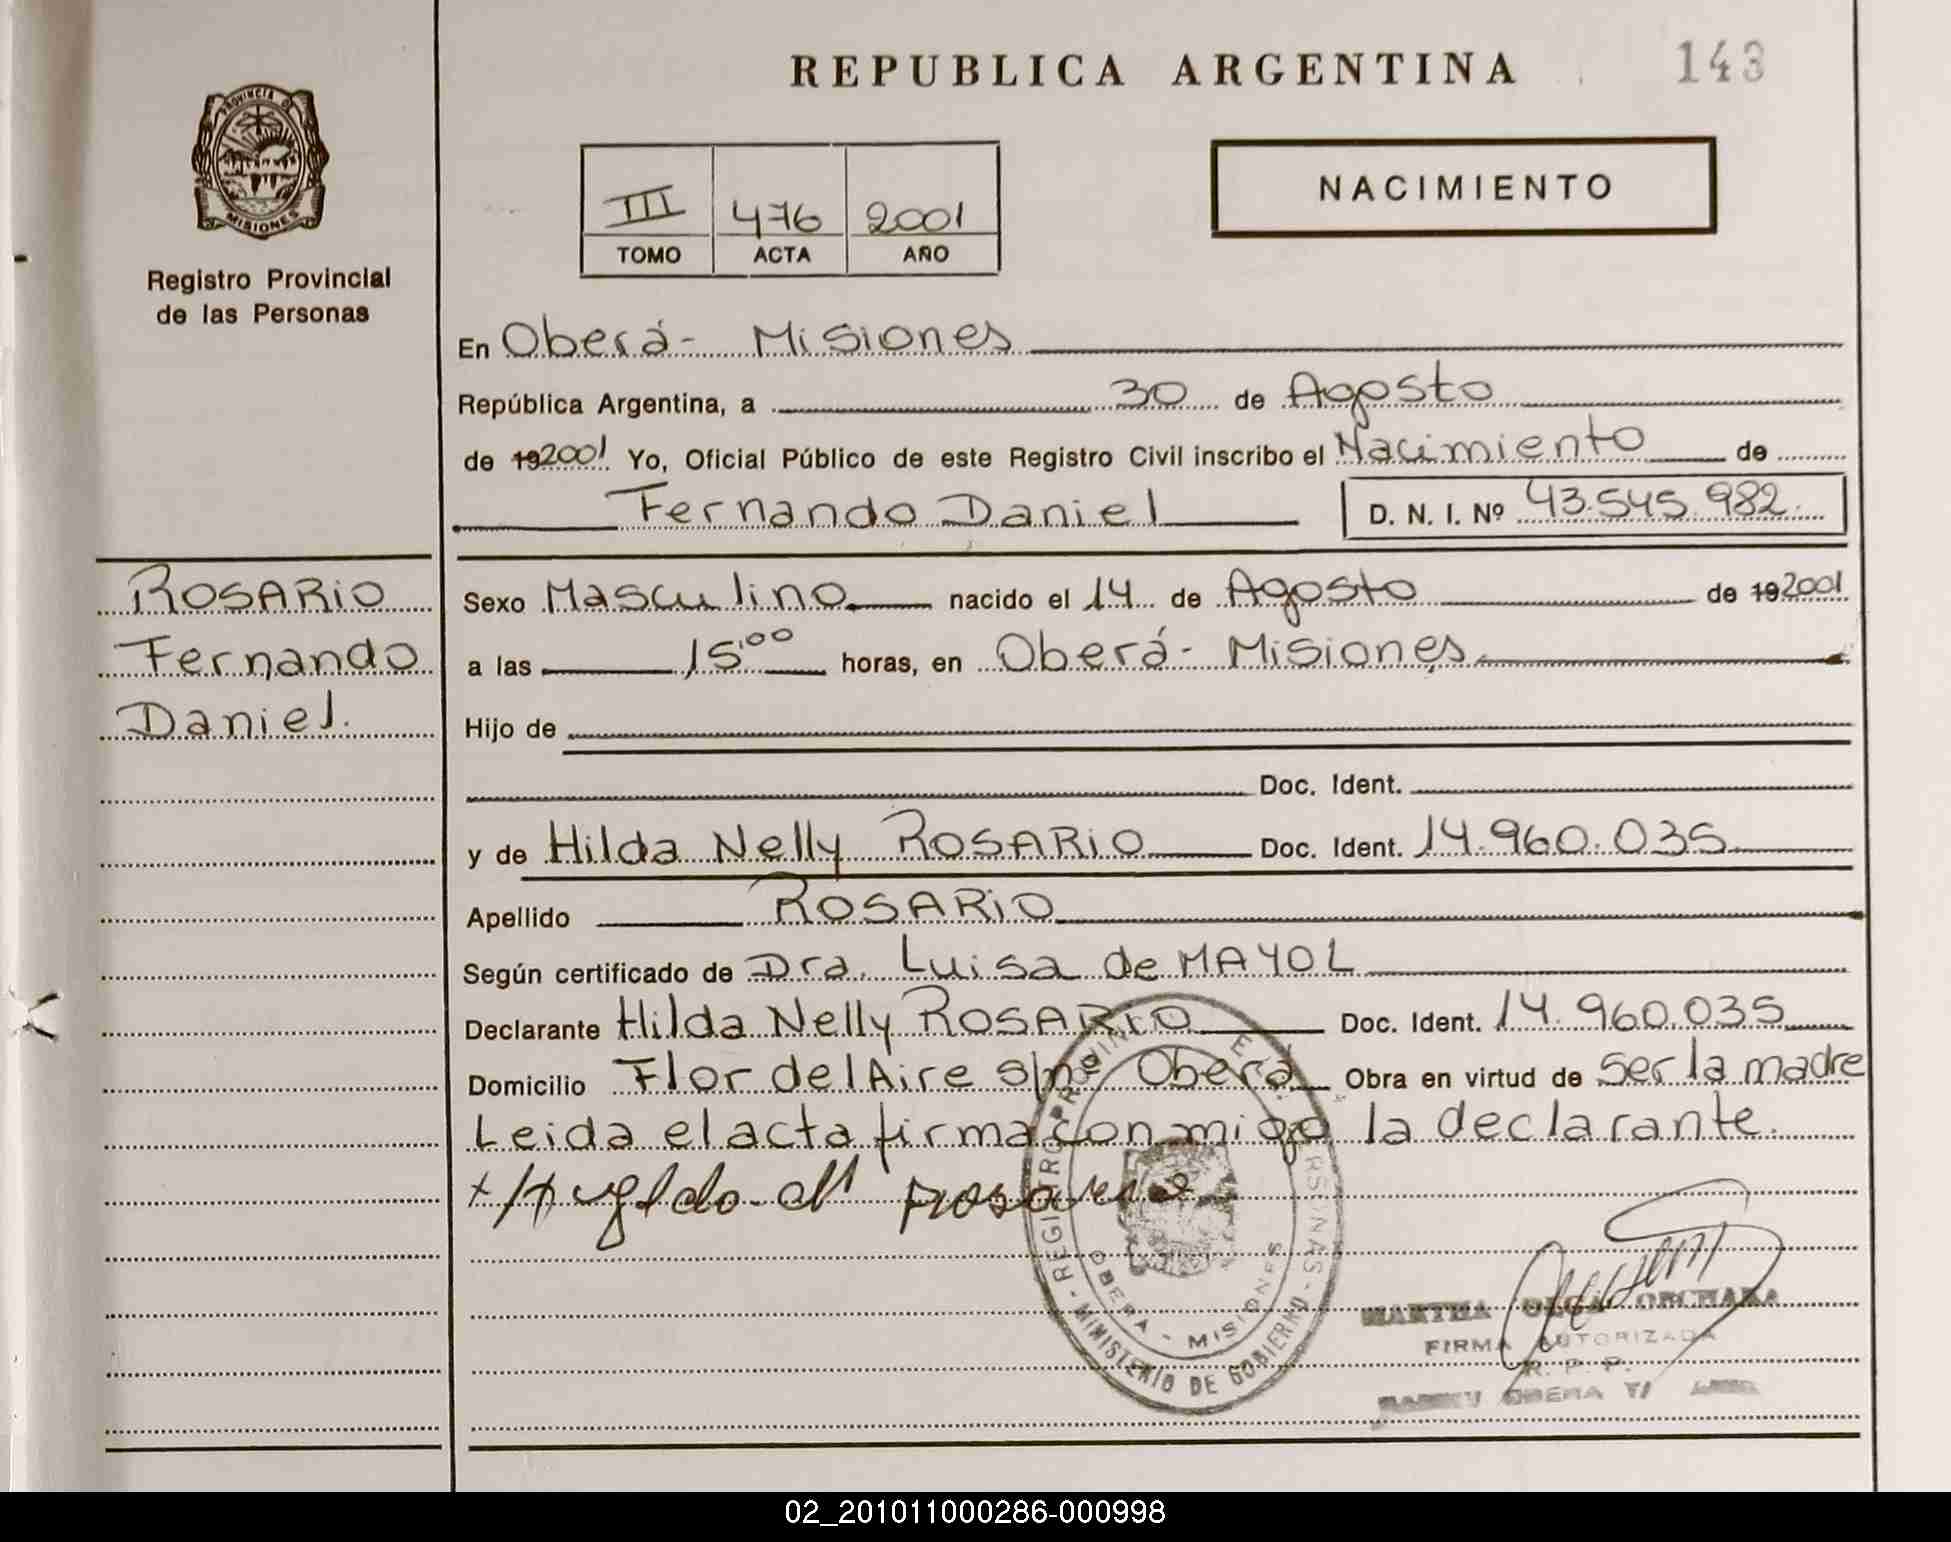 REPUBLICA ARGENTINA
143
PROVINCIA D
MISIONES
Registro Provincial
de las Personas
III 476 2001
TOMO ACTA AÑO
NACIMIENTO
En Oberá - Misiones
República Argentina, a 30 de Agosto
de 19 2001 Yo, Oficial Público de este Registro Civil inscribo el Nacimiento de
Fernando Daniel D. N. I. Nº 43.545.982.
ROSARiO
Fernando
Daniel.
Sexo Masculino nacido el 14 de Agosto de 19 2001
a las 15:00 horas, en Oberá - Misiones
Hijo de
Doc. Ident.
y de Hilda Nelly ROSARiO Doc. Ident. 14.960.035
Apellido ROSARiO
Según certificado de Dra. Luisa de MAYOL
Declarante Hilda Nelly ROSARiO Doc. Ident. 14.960.035
Domicilio Flor del Aire s/nº Oberá Obra en virtud de ser la madre
Leida el acta firma conmigo la declarante.
REGISTRO PROVINCIAL DE LAS PERSONAS - MINISTERIO DE GOBIERNO -
OBERA - MISIONES
MARTHA OLGA
FIRMA AUTORIZADA
R. P. P.
OBERA
02_201011000286-000998